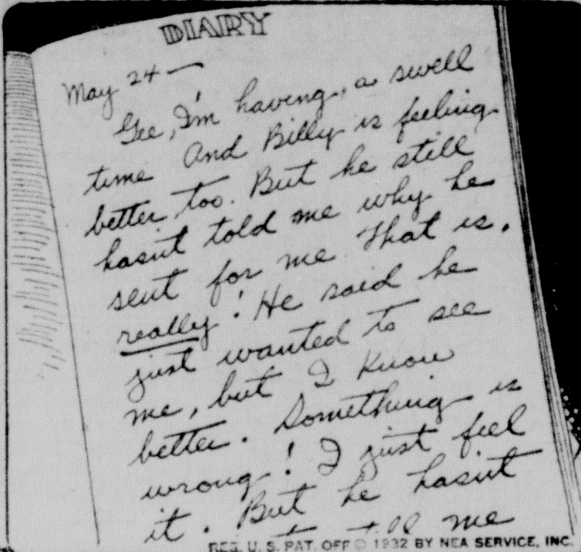 DIARY
May 24—
Gee, I'm having a swell
time and Billy is feeling
better too. But he still
hasn't told me why he
sent for me. That is,
really! He said he
just wanted to see
me, but I know
better. Something is
wrong! I just feel
it. But he hasn't
me
REG. U. S. PAT. OFF © 1932 BY NEA SERVICE, INC.